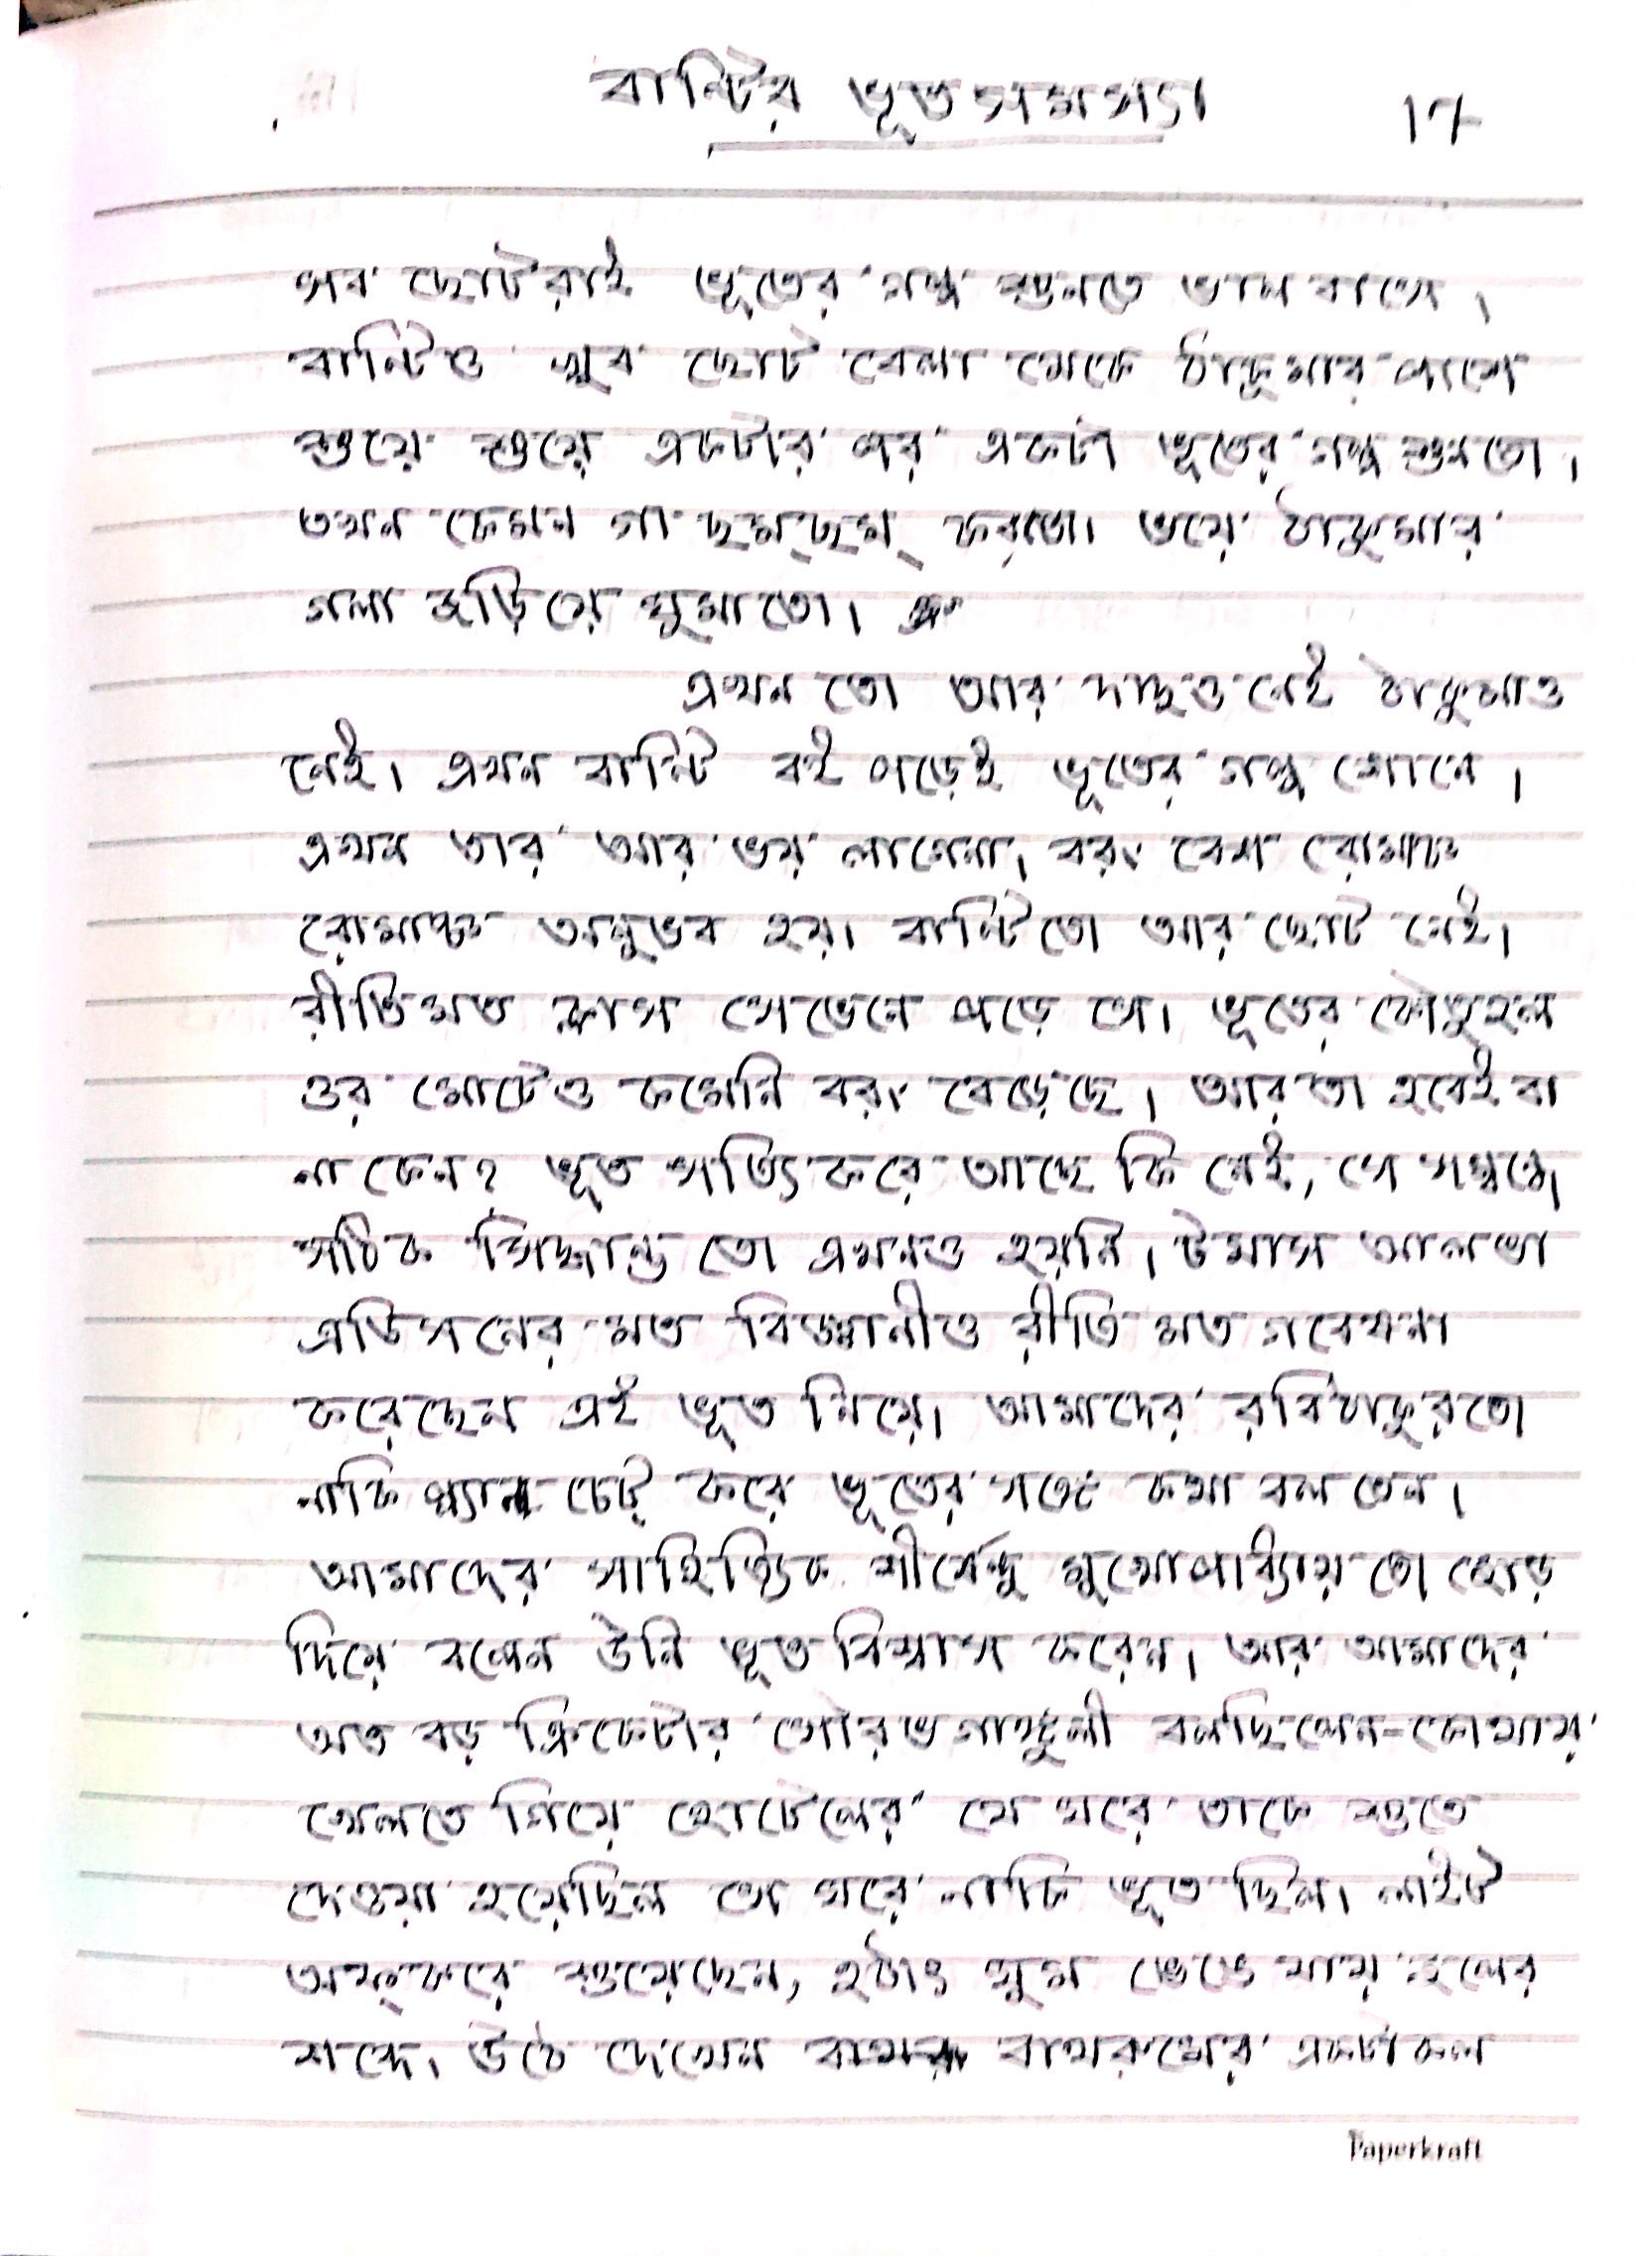 বান্টির ভূতসমস্যা 17
সব ছোটরাই ভূতের গল্প শুনতে ভালবাসে।
বান্টিও খুব ছোট বেলা থেকে ঠাকুমার পাশে
শুয়ে শুয়ে একটার পর একটা ভূতের গল্প শুনতো।
তখন কেমন গা ছম্‌ছম্‌ করতো। ভয়ে ঠাকুমার
গলা জড়িয়ে ঘুমাতো।
এখন তো আর দাদুও নেই ঠাকুমাও
নেই। এখন বান্টি বই পড়েই ভূতের গল্প শোনে।
এখন তার আর ভয় লাগেনা, বরং বেশ রোমাঞ্চ
রোমাঞ্চ অনুভব হয়। বান্টিতো আর ছোট নেই।
রীতিমত ক্লাস সেভেনে পড়ে সে। ভূতের কৌতুহল
ওর মোটেও কমেনি বরং বেড়েছে। আর তা হবেই বা
না কেন? ভূত সত্যি করে আছে কি নেই, সে সম্বন্ধে
সঠিক সিদ্ধান্ত তো এখনও হয়নি। টমাস আলভা
এডিসনের মত বিজ্ঞানীও রীতি মত গবেষনা
করেছেন এই ভূত নিয়ে। আমাদের রবিঠাকুরতো
নাকি প্ল্যানচেট্ করে ভূতের সঙ্গে কথা বলতেন।
আমাদের সাহিত্যিক শীর্ষেন্দু মুখোপাধ্যায় তো জোড়
দিয়ে বলেন উনি ভূত বিশ্বাস করেন। আর আমাদের
অত বড় ক্রিকেটার সৌরভ গাঙ্গুলী বলছিলেন-কোথায়
খেলতে গিয়ে হোটেলের যে ঘরে তাকে শুতে
দেওয়া হয়েছিল সে ঘরে নাকি ভূত ছিল। লাইট
অফ্‌ করে শুয়েছেন, হঠাৎ ঘুম ভেঙে যায় জলের
শব্দে। উঠে দেখেন বাথরুমের একটা কল
Paperkraft